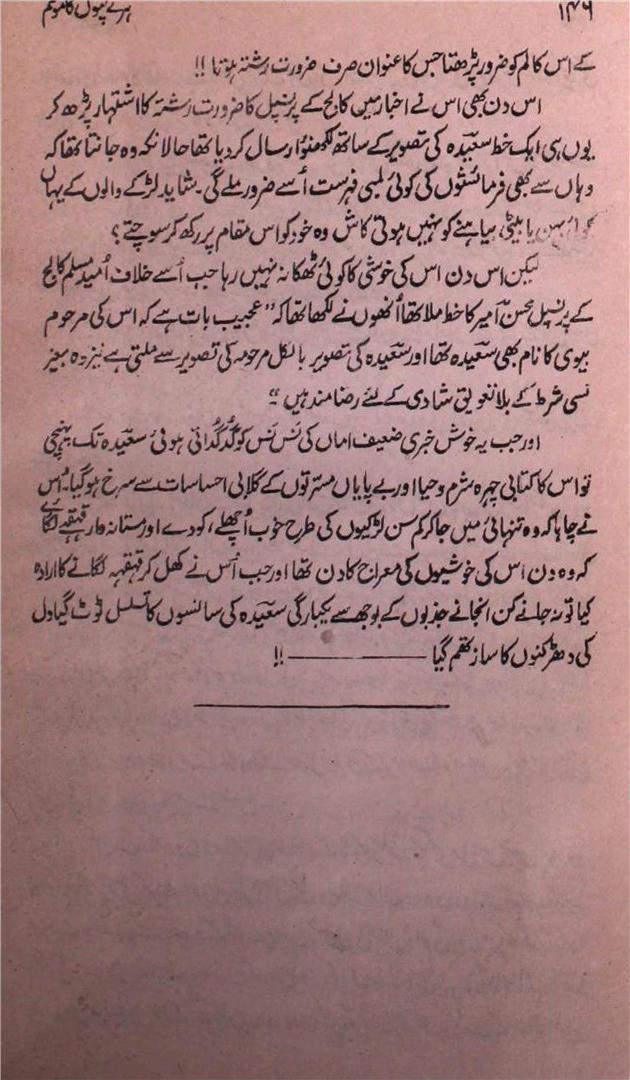 ۱۴۶
کے اس کالم کو ضرور پڑھتا جس کا عنوان صرف ضرورت رشتہ ہوتا !!
اس دن بھی اس نے اخبار میں کالج کے پرنسپل کا ضرورت رشتہ کا اشتہار پڑھ کر
یوں ہی ایک خط سعیدہ کی تصویر کے ساتھ لکھنؤ ارسال کر دیا تھا حالانکہ وہ جانتا تھا کہ
وہاں سے بھی فرمائشوں کی کوئی لمبی فہرست اُسے ضرور ملے گی۔ شاید لڑکے والوں کے یہاں
بہن یا بیٹی بیاہنے کو نہیں ہوتی کاش وہ خود کو اس مقام پر رکھ کر سوچتے ؟
لیکن اس دن اس کی خوشی کا کوئی ٹھکانہ نہیں رہا جب اُسے خلاف اُمید مسلم کالج
کے پرنسپل محسن امیر کا خط ملا تھا اُنھوں نے لکھا تھا کہ " عجیب بات ہے کہ اس کی مرحوم
بیوی کا نام بھی سعیدہ تھا اور سعیدہ کی تصویر بالکل مرحومہ کی تصویر سے ملتی ہے نیز وہ بغیر
کسی شرط کے بلا تعویق شادی کے لئے رضا مند ہیں "
اور جب یہ خوش خبری ضعیف اماں کی نَس نَس کو گُدگُداتی ہوئی سعیدہ تک پہنچی
تو اس کا کتابی چہرہ شرم و حیا اور بے پایاں مسرتوں کے گلابی احساسات سے سرخ ہو گیا۔ اُس
نے چاہا کہ وہ تنہائی میں جا کر کم سن لڑکیوں کی طرح خوب اُچھلے ، کودے اور مستانہ وار قہقہے لگائے
کہ وہ دن اس کی خوشیوں کی معراج کا دن تھا اور جب اُس نے کھل کر قہقہہ لگانے کا ارادہ
کیا تو نہ جانے کن انجانے جذبوں کے بوجھ سے یکبارگی سعیدہ کی سانسوں کا تسلسل ٹوٹ گیا دل
کی دھڑکنوں کا ساز تھم گیا ———— !!